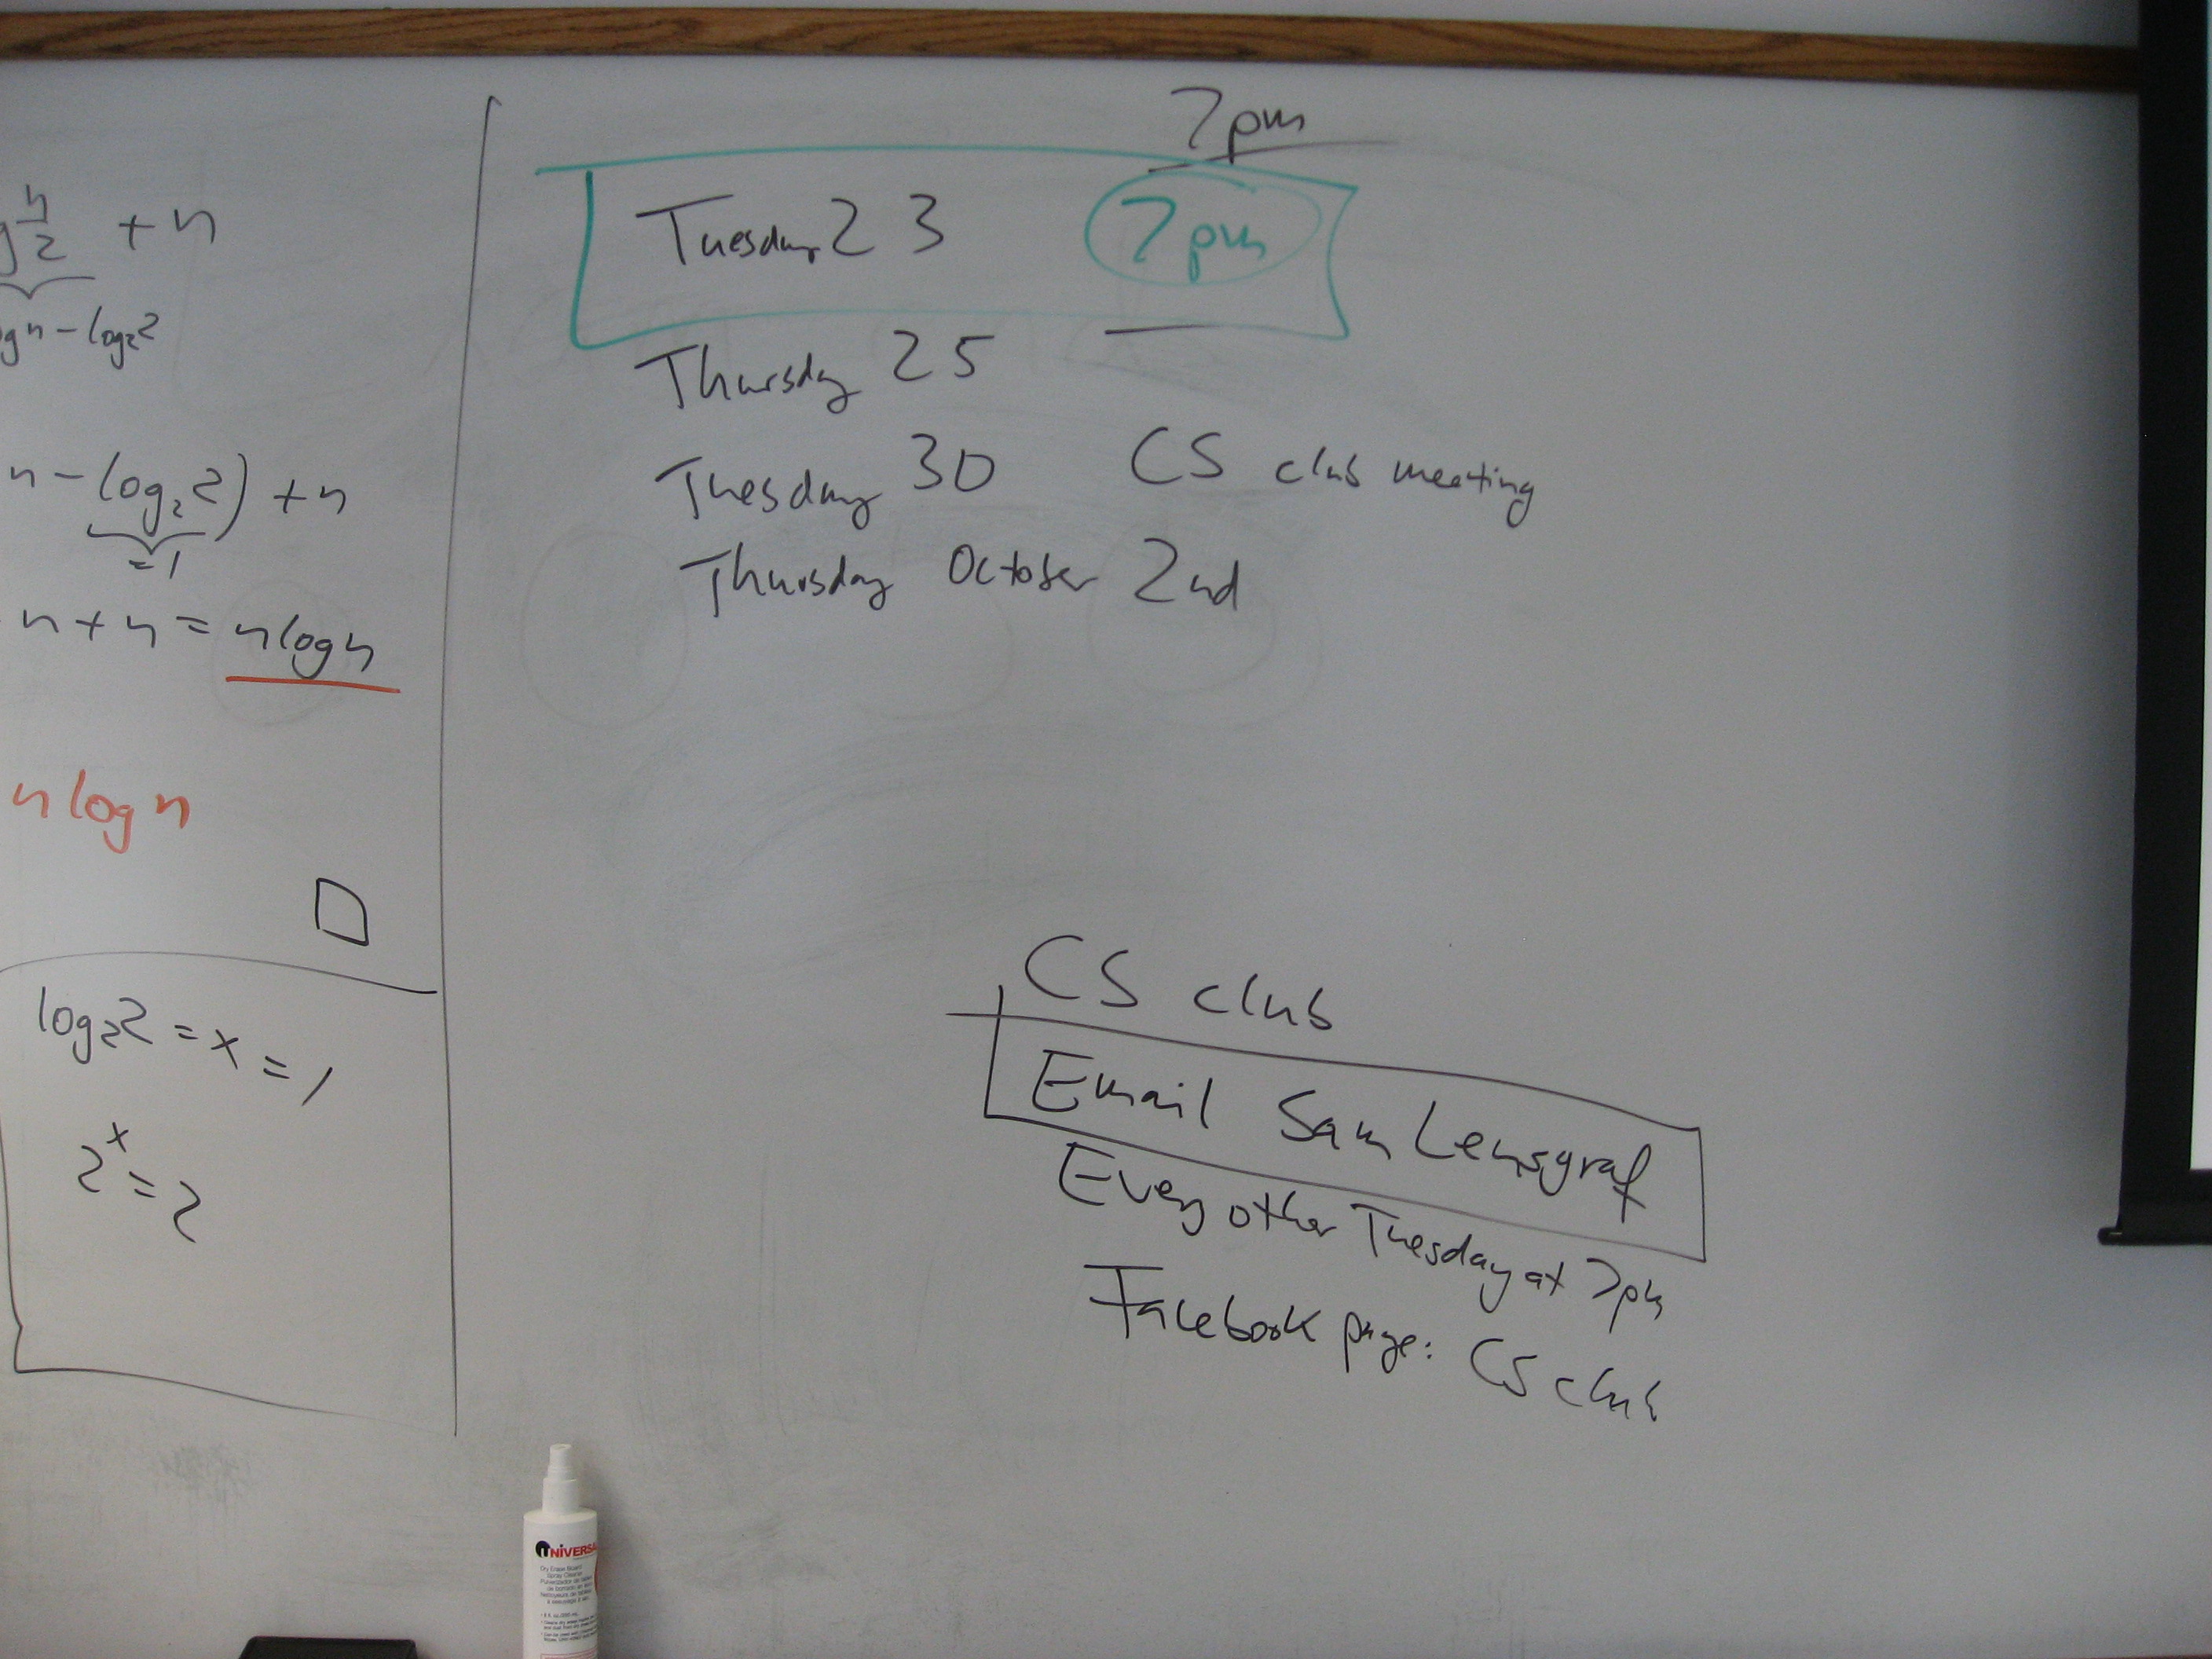 n/2 + n
n - log₂2
n - log₂2) + n
= 1
n + n = n log n
n log n
log₂2 = x = 1
2ˣ = 2
7pm
Tuesday 23 7pm
Thursday 25
Tuesday 30 CS club meeting
Thursday October 2nd
CS club
Email Sam Lensgraf
Every other Tuesday at 7pm
Facebook page: CS club
UNIVERSAL
Dry Erase Board
Spray Cleaner